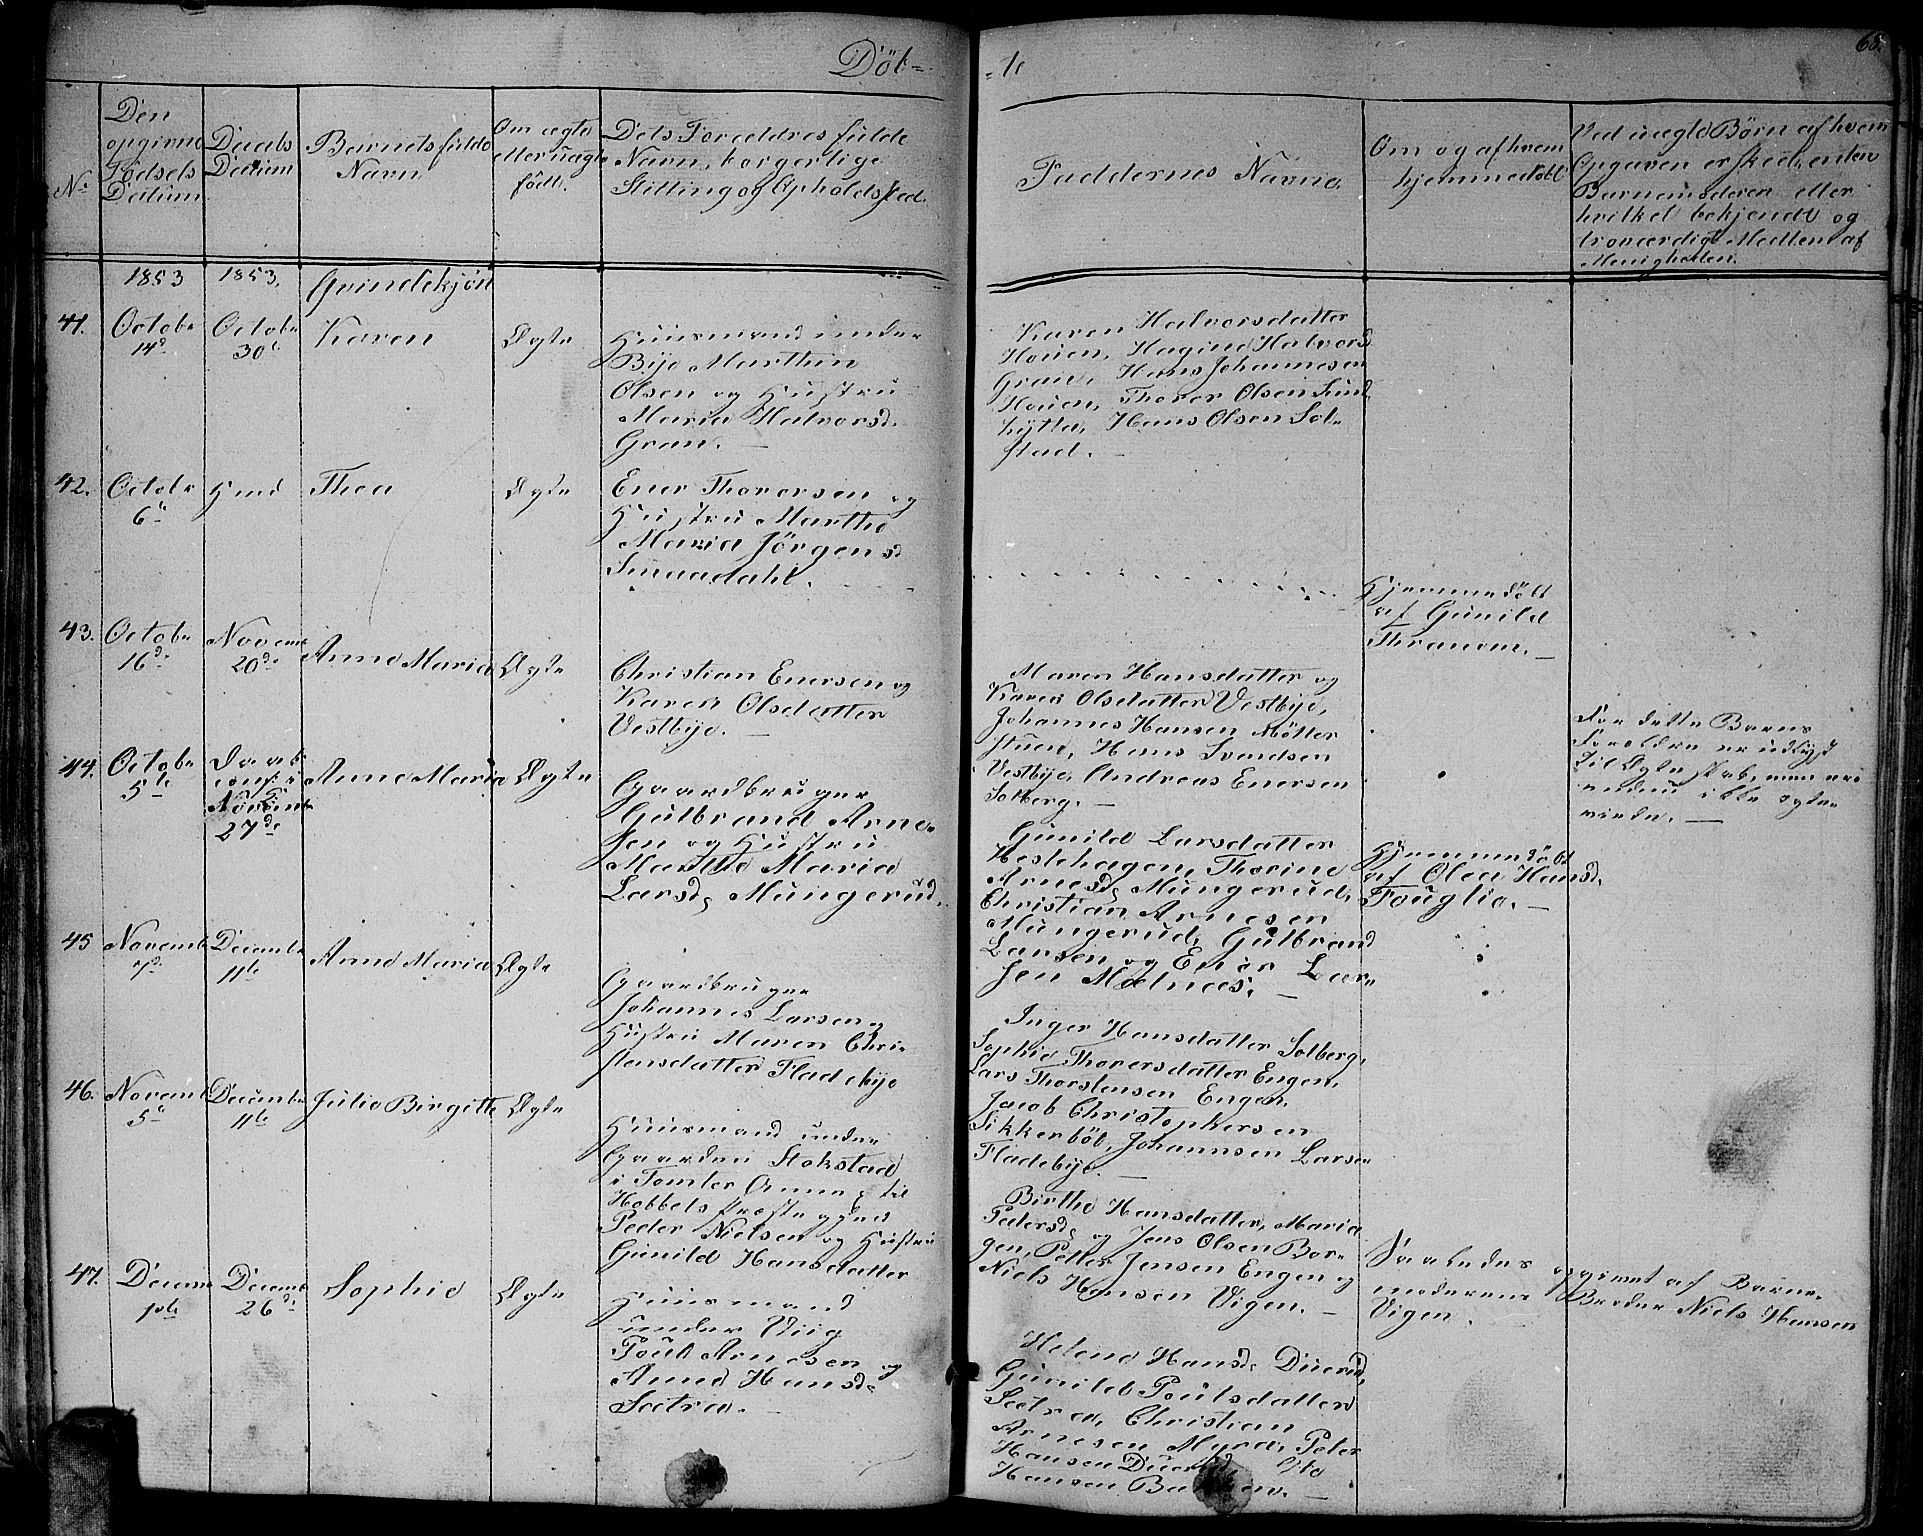 Döb=
=te
68.
No
Den
opgivne
Födsels
Datum
Daabs
Datum
Barnets fulde
Navn
Om ægte
eller uægte
født.
Dets Forældres fulde
Navn, borgerlige
Stilling og Opholdssted.
Faddernes Navne.
Om og af hvem
hjemmedöbt
Ved uægte Børn af hvem
Opgaven er skeet, enten
Barnemoderen eller
hvilket bekjendt og
troværdigt Medlem af
Menigheden.
1853
1853.
Qvindekjön
41.
Octobr
14de
Octobr
30te
Karen
Ægte
Huusmand under
Bye Marthin
Olsen og Hustru
Maria Halvorsd.
Gran. —
Karen Halvorsdatter
Houen, Hagine Halvorsd
Gran, Hans Johannesen
Houen, Thorer Olsen Sund
hytta, Hans Olsen Sol-
stad. —
42.
Octobr
6te
Thea
Ægte
Ener Thorersen og
Hustru Marthe
Maria Jörgensd
Smaadahl.
Hjemmedöbt
af Gunild
Thranem. —
43.
Octobr
16de
Novemb
20de
Anne Maria
Ægte
Christian Enersen og
Karen Olsdatter
Vestbye. —
Maren Hansdatter og
Karen Olsdatter Vestbye,
Johannes Hansen Møller
stuen, Hans Svendsen
Vestbye, Andreas Enersen
Solberg. —
For dette Barns
Forældre er udlyst
til Ægteskab, men ere
endnu ikke ægte-
viede. —
44.
Octobr
5te
Daab
conf. i
Novemb
27de
Anne Maria
Ægte
Gaardbruger
Gulbrand Arne-
sen og Hustru
Marthe Maria
Larsd. Mungerud.
Gunild Larsdatter
Heslehagen, Thorine
Arnesd. Mungerud,
Christian Arnesen
Mungerud, Gulbrand
Larsen og Ener Lar-
sen Molnæs. —
Hjemmedöbt
af Olea Hansd.
Fouglie. —
45
Novemb
7de
Decembr
11te
Anne Maria
Ægte
Gaardbruger
Johannes Larsen og
Hustru Maren Chri-
stensdatter Fladebye
Inger Hansdatter Solberg,
Sophie Thorersdatter Engen,
Lars Thorstensen Engen,
Jacob Christophersen
Sikkerböl, Johannsen Larsen
Fladebye. —
46.
Novemb
5te
Decembr
11te
Julie Birgitte
Ægte
Huusmand under
Gaarden Stokstad
i Tomter Annex til
Hobbels Præstegjeld
Peder Nielsen og Hustru
Gunild Hansdatter
Birthe Hansdatter, Maria
Pedersd. og Jens Olsen Bor-
gen, Petter Jensen Engen og
Niels Hansen Vigen. —
Saaledes opgivet af Barne-
moderens Broder Niels Hansen
Vigen.
47.
Decem
1ste
Decemb
26de
Sophie
Ægte
Huusmand
under Wiig
Poul Arnesen og
Anne Hansd.
Sætra. —
Helene Hansd. Duerud,
Gunild Poulsdatter
Sætra, Christian
Arnesen Myra, Peter
Hansen Duerud, Ole
Hansen